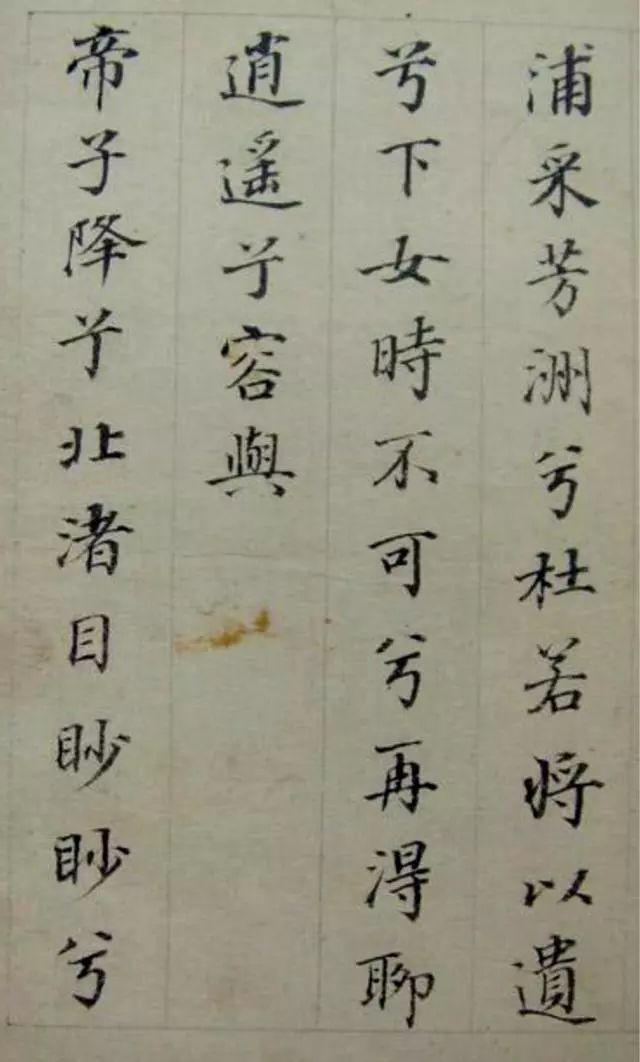 浦采芳洲兮杜若将以遺
兮下女時不可兮再得聊
逍遥兮容與
帝子降兮北渚目眇眇兮